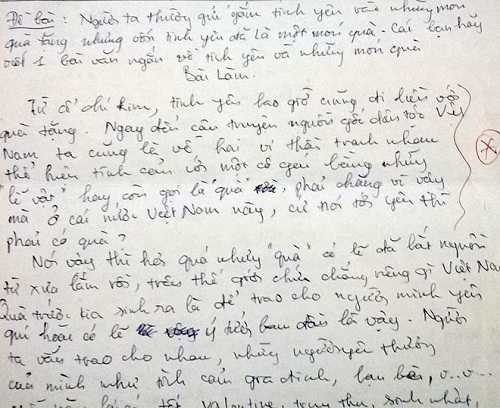 Đề bài: Người ta thường gửi gắm tình yêu vào những món
quà tặng nhưng vốn tình yêu đã là một món quà. Các bạn hãy
viết 1 bài văn ngắn về tình yêu và những món quà
Bài Làm.
Từ cổ chí kim, tình yêu bao giờ cũng đi liền với
quà tặng. Ngay đến câu truyện nguồn gốc dân tộc Việt
Nam ta cũng là về hai vị thần tranh nhau
thể hiện tình cảm với một cô gái bằng những
lễ vật hay còn gọi là "quà", phải chăng vì vậy
mà ở cái nước Việt Nam này, cứ nói tới yêu thì
phải có quà?
Nói vậy thì hơi quá nhưng "quà" có lẽ đã bắt nguồn
từ xưa lắm rồi, trên thế giới chứ chẳng riêng gì Việt Nam
Quà trước kia sinh ra là để trao cho người mình yêu
quí hoặc có lẽ ý tưởng ban đầu là vậy. Người
ta vẫn trao cho nhau, những người yêu thương
của mình như tình cảm gia đình, bạn bè, v..v...
valentine, trung thu, sinh nhật,